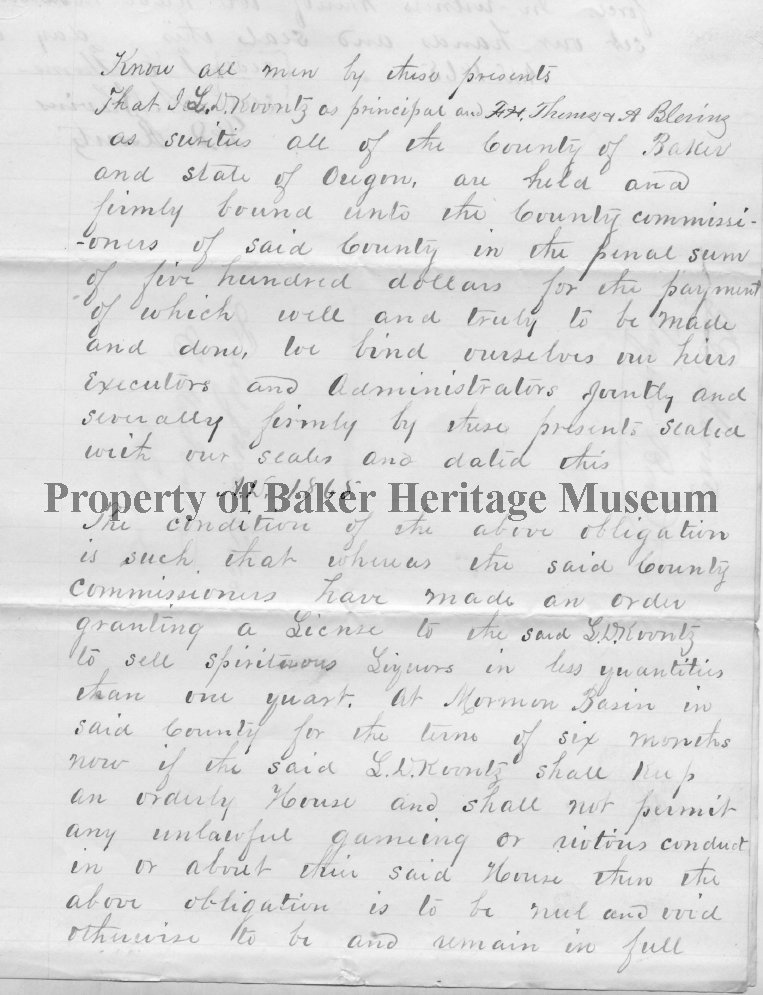 Know all men by these presents
That I L.D. Koontz as principal and F.H. Themes & A Blering
as surities all of the County of Baker
and state of Oregon, are held and
firmly bound unto the County commissi-
-oners of said County in the penal sum
of five hundred dollars for the payment
of which well and truly to be made
and done, we bind ourselves our heirs
Executors and Administrators Jointly and
severally firmly by these presents sealed
with our seales and dated this
AD 1865
Property of Baker Heritage Museum
The condition of the above obligation
is such that whereas the said County
Commissioners have made an order
granting a License to the said L.D. Koontz
to sell spiritenous Liquors in less quantities
than one quart. At Mormon Basin in
said County for the term of six months
now if the said L.D. Koontz shall keep
an orderly House and shall not permit
any unlawful gameing or riotous conduct
in or about their said House then the
above obligation is to be null and void
otherwise to be and remain in full